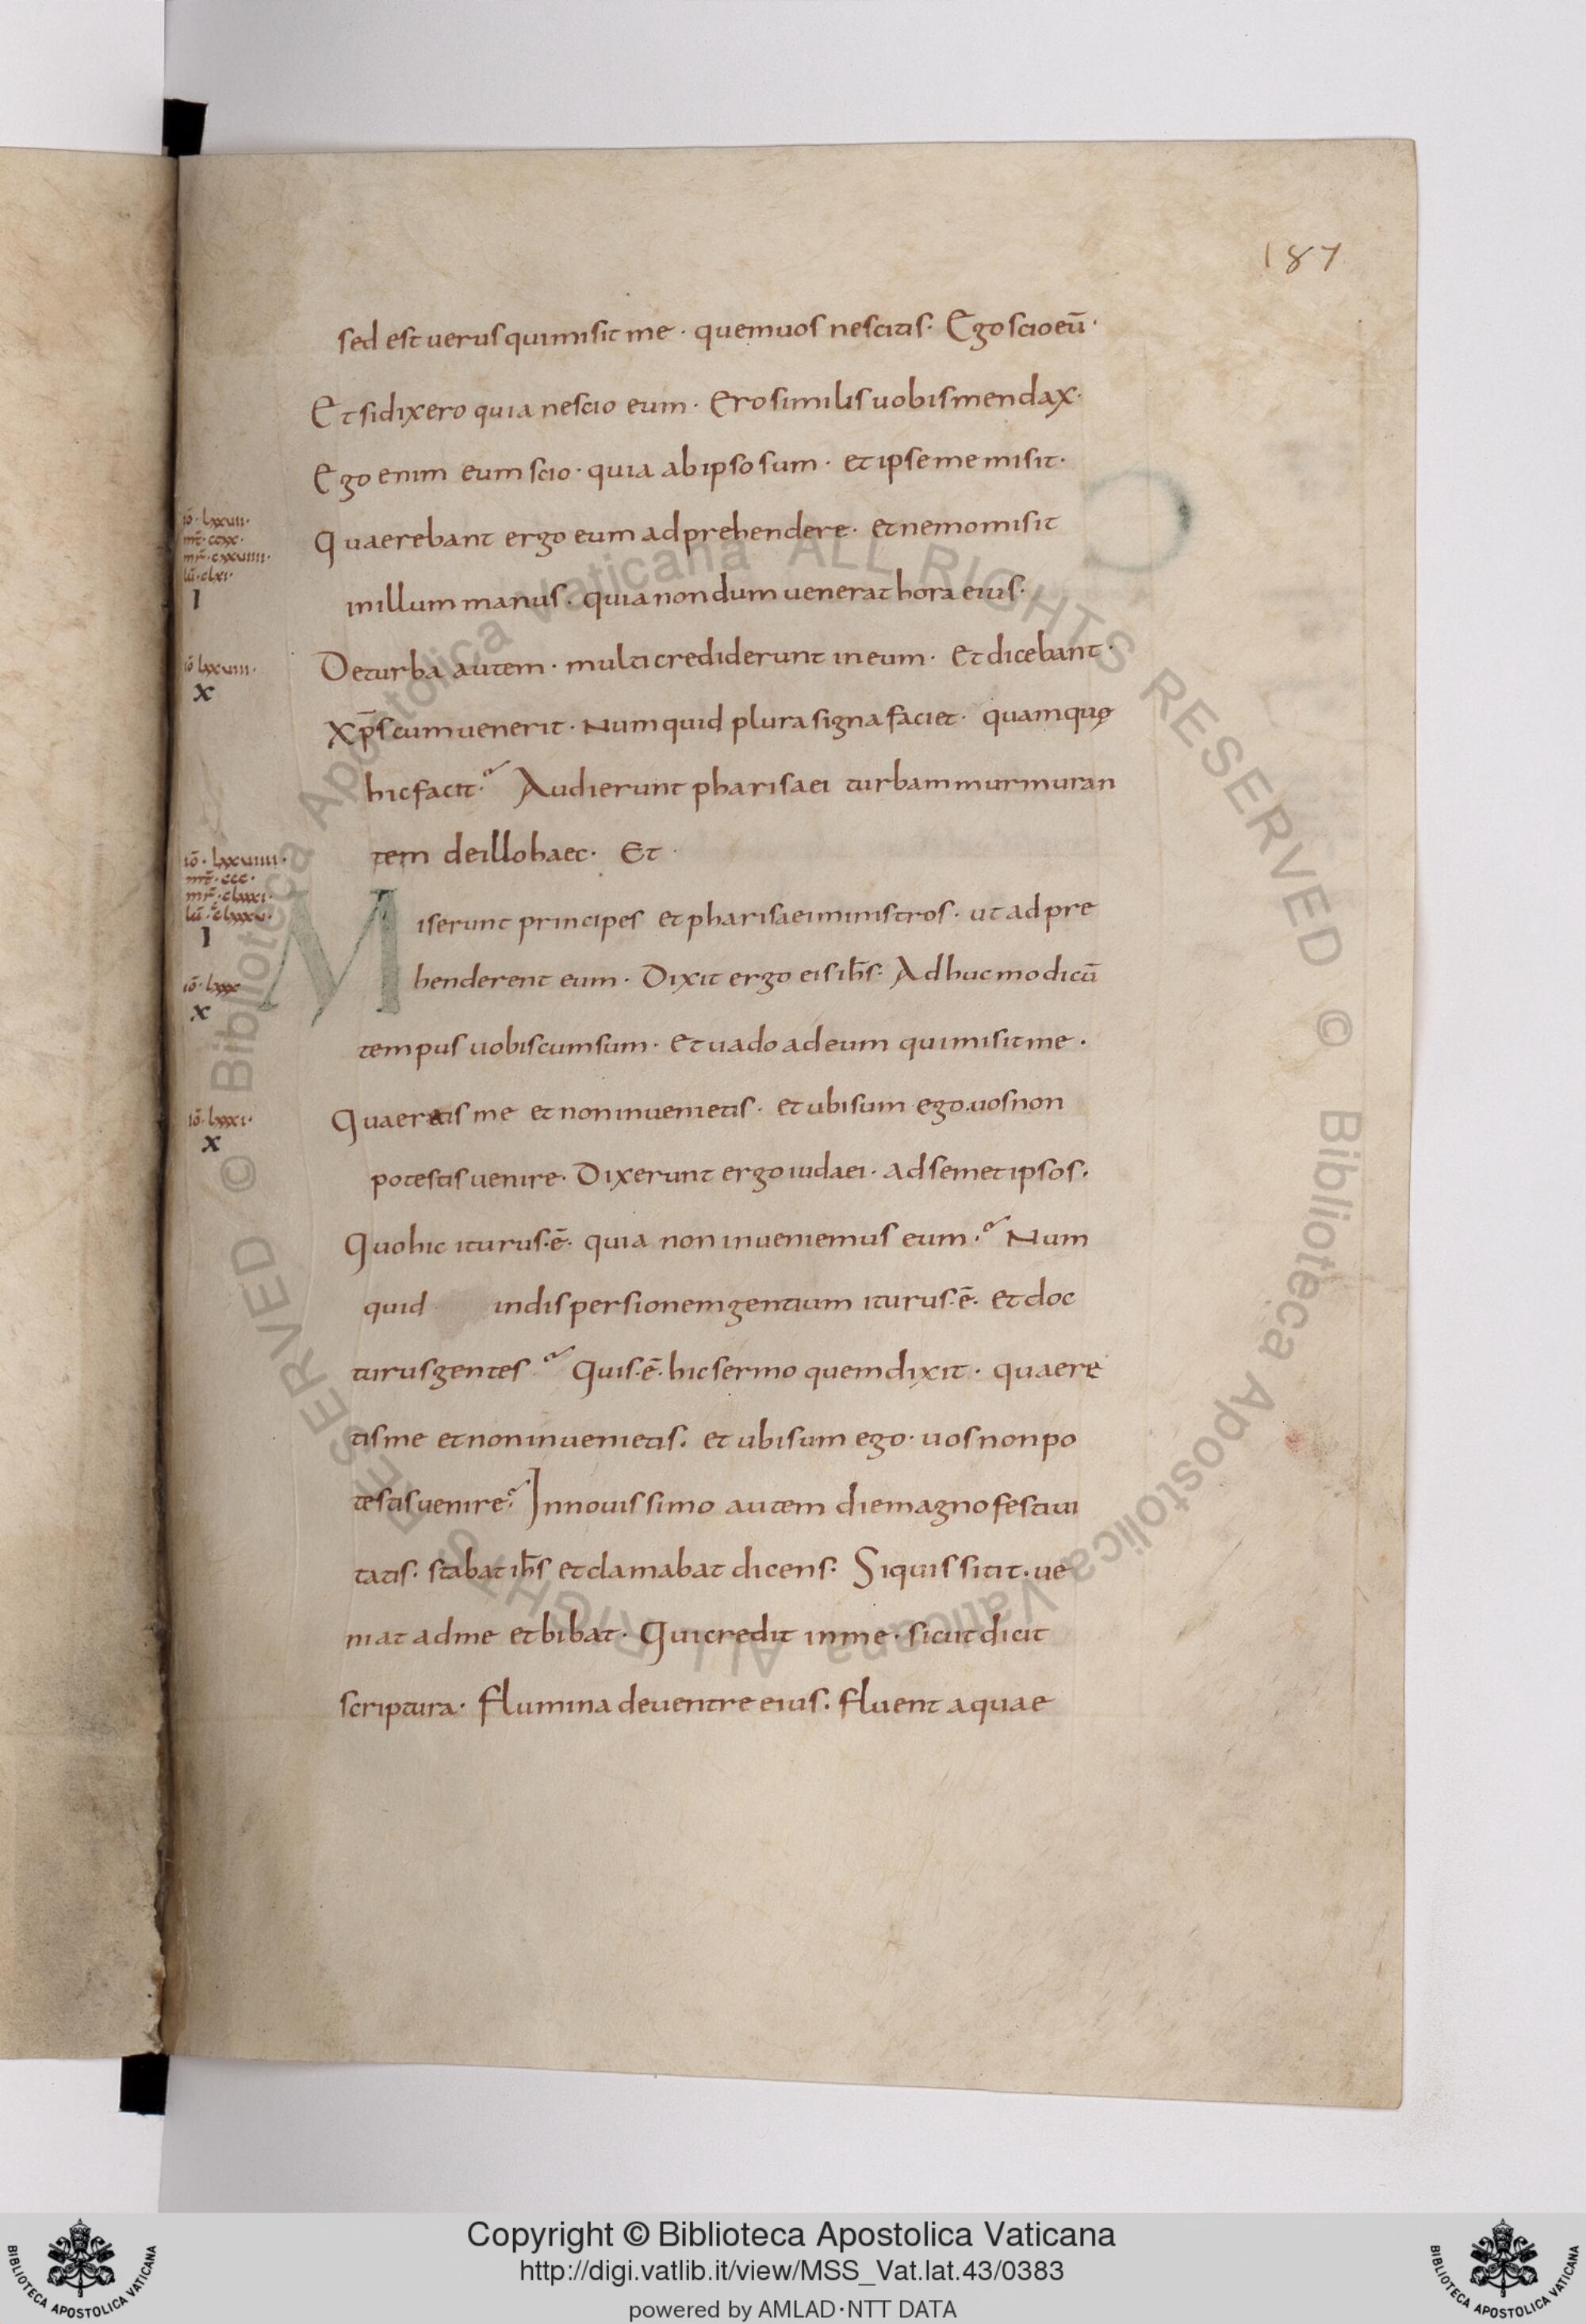 187
sed est uerus qui misit me · quem uos nescitis · Ego scio eū ·
Et si dixero quia nescio eum · Ero similis uobis mendax ·
Ego enim eum scio · quia ab ipso sum · et ipse me misit ·
iō · lxxvii ·
mr̄ · cxxviiii ·
lū · clxi ·
I
Quaerebant ergo eum adprehendere · et nemo misit
in illum manus · quia nondum uenerat hora eius ·
iō lxxviii ·
x
De turba autem · multi crediderunt in eum · Et dicebant ·
Xp̄s cum uenerit · Numquid plura signa faciet · quam quę
hic facit · Audierunt pharisaei turbam murmuran
tem de illo haec · Et ·
iō · lxxviiii ·
mt̄ · ccc ·
mr̄ · clxxxi ·
I
Miserunt principes et pharisaei ministros · ut adpre
henderent eum · Dixit ergo eis ih̄s · Adhuc modicū
iō · lxxx
x
tempus uobiscum sum · Et uado ad eum qui misit me ·
iō · lxxxi ·
x
Quaeretis me et non inuenietis · et ubi sum ego · uos non
potestis uenire · Dixerunt ergo iudaei · ad semet ipsos ·
Quo hic iturus · ē · quia non inueniemus eum · Num
quid in dispersionem gentium iturus · ē · et doc
turus gentes Quis · ē · hic sermo quem dixit · quaere
tis me et non inuenietis · et ubi sum ego · uos non po
testis uenire · In nouissimo autem die magno festiui
tatis · stabat ih̄s et clamabat dicens · Si quis sitit · ue
niat ad me et bibat · Qui credit in me · sicut dicit
scriptura · flumina de uentre eius · fluent aquae
© Biblioteca Apostolica Vaticana ALL RIGHTS RESERVED
© Biblioteca Apostolica Vaticana ALL RIGHTS RESERVED
Copyright © Biblioteca Apostolica Vaticana
http://digi.vatlib.it/view/MSS_Vat.lat.43/0383
powered by AMLAD·NTT DATA
BIBLIOTECA APOSTOLICA VATICANA
BIBLIOTECA APOSTOLICA VATICANA